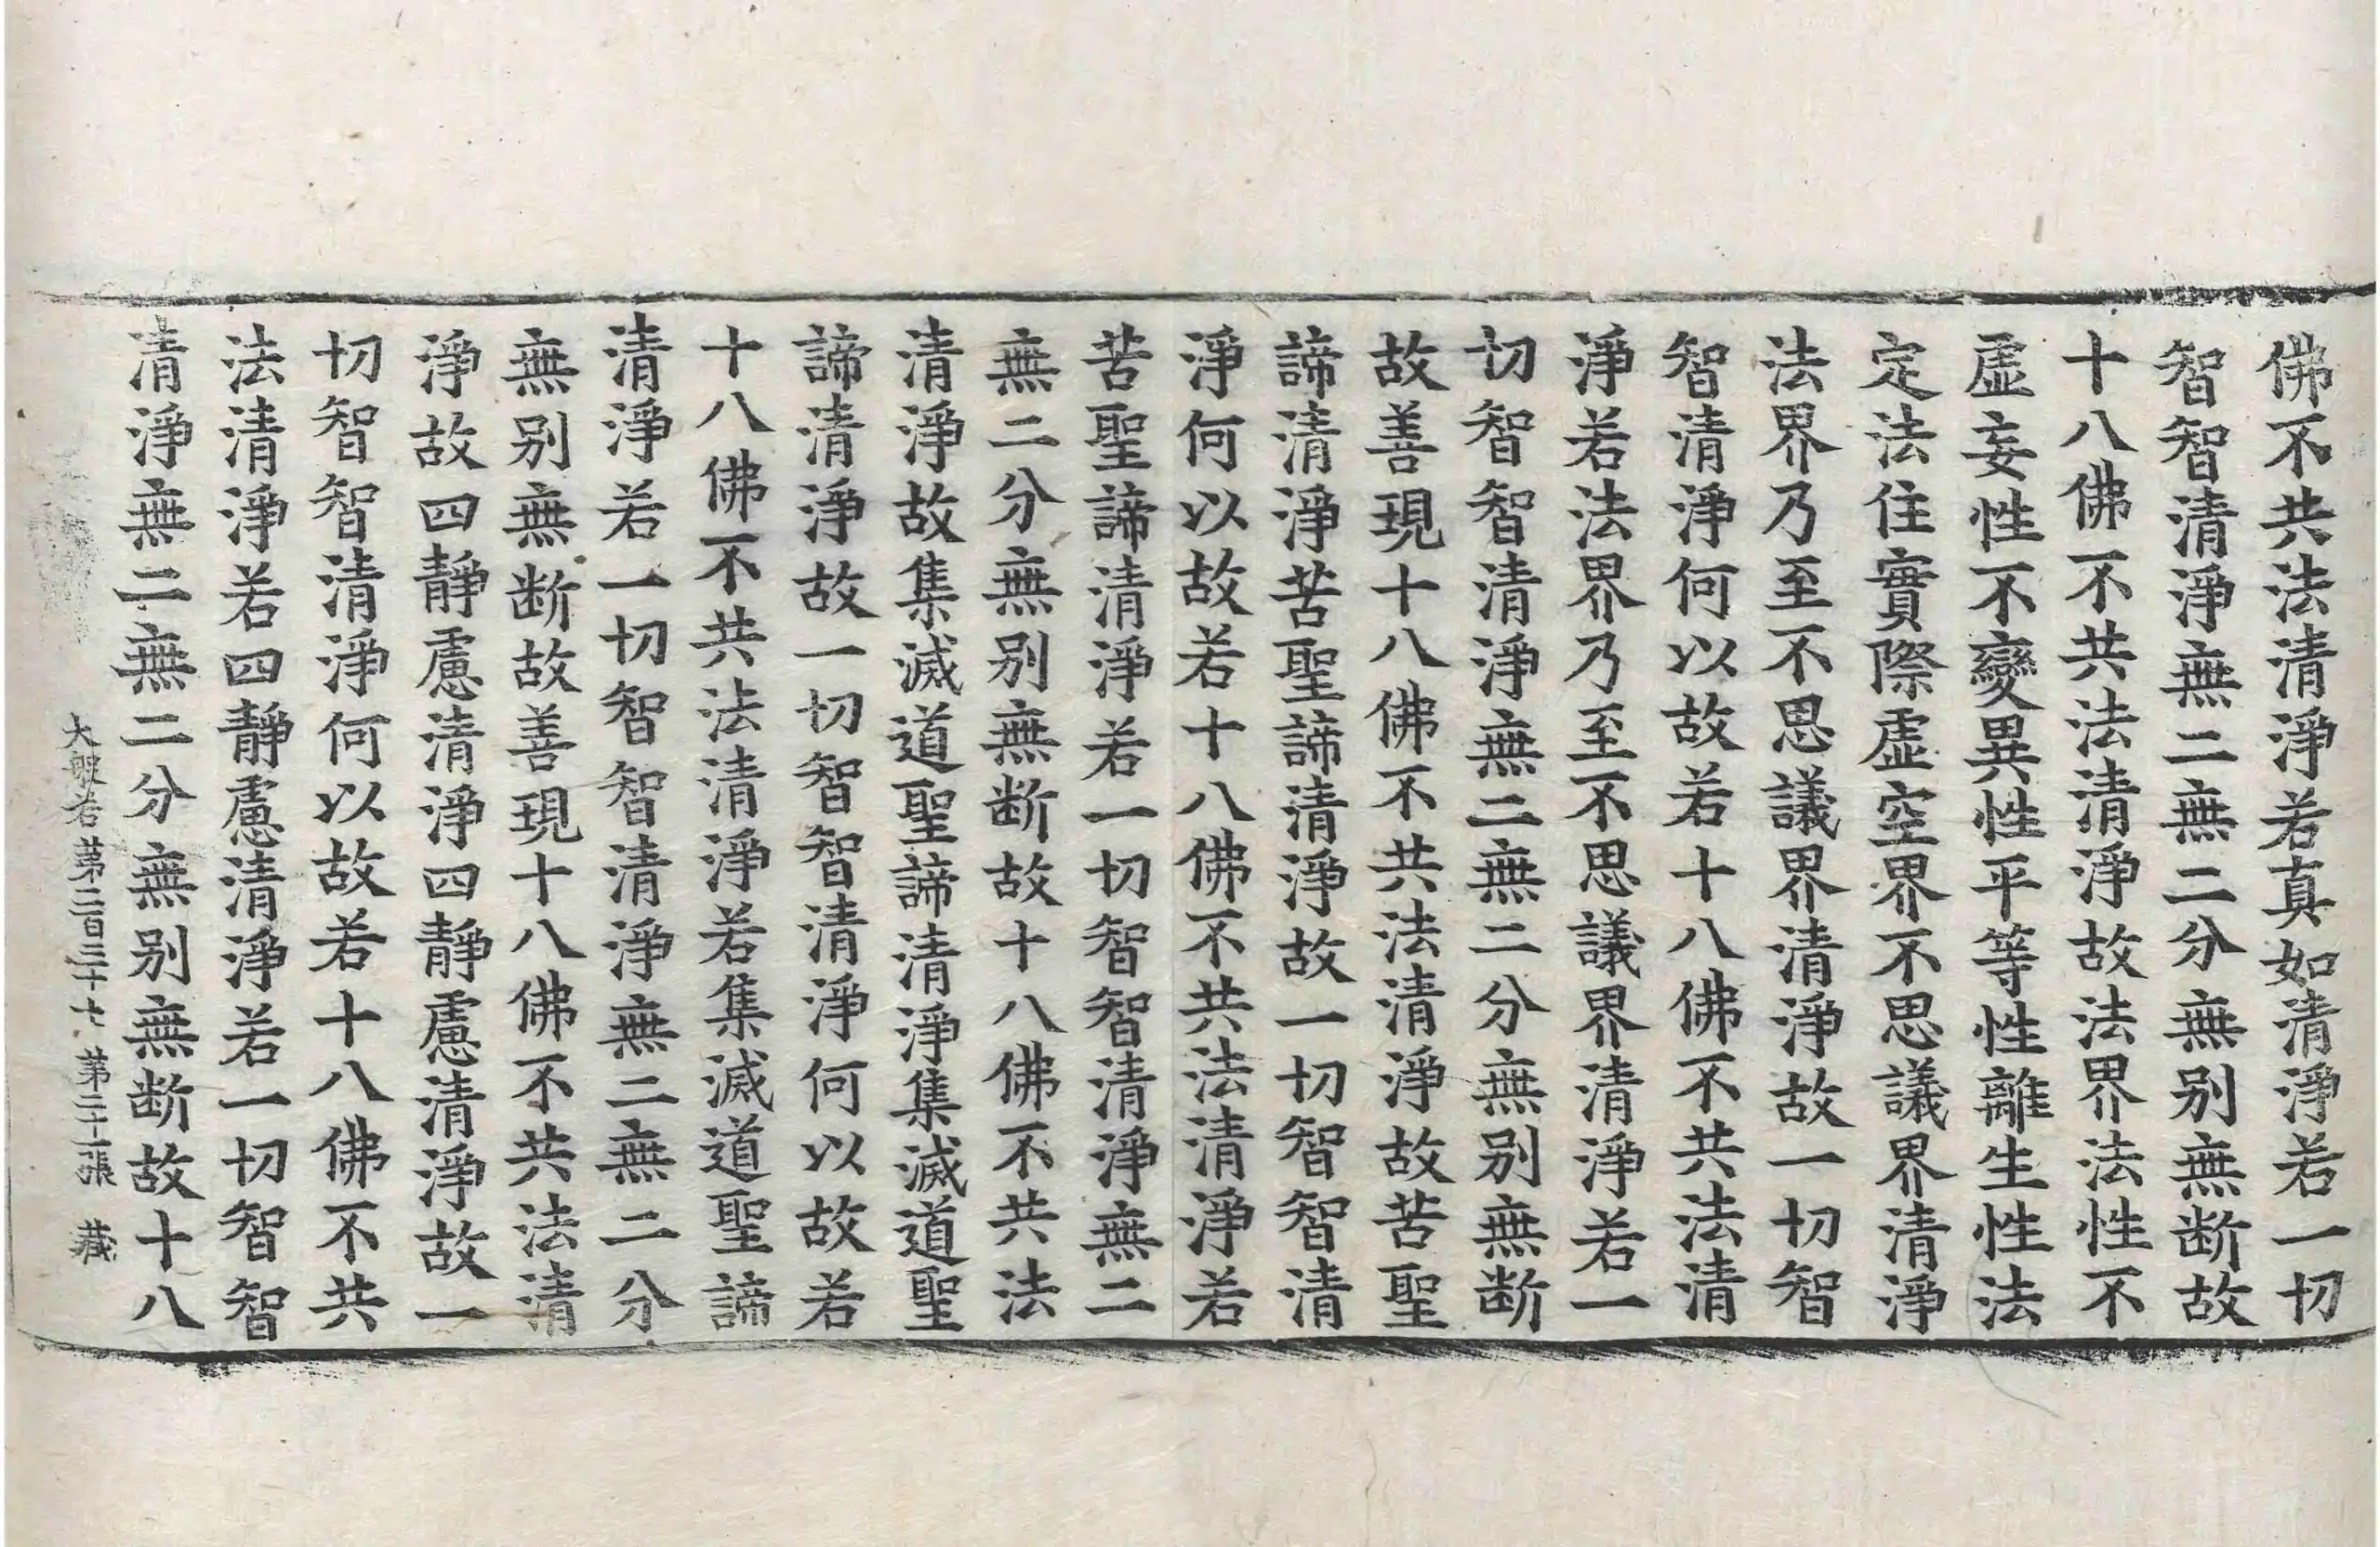 佛不共法清淨若真如清淨若一切
智智清淨無二無二分無别無断故
十八佛不共法清淨故法界法性不
虛妄性不變異性平等性離生性法
定法住實際虛空界不思議界清淨
法界乃至不思議界清淨故一切智
智清淨何以故若十八佛不共法清
淨若法界乃至不思議界清淨若一
切智智清淨無二無二分無别無断
故善現十八佛不共法清淨故苦聖
諦清淨苦聖諦清淨故一切智智清
淨何以故若十八佛不共法清淨若
苦聖諦清淨若一切智智清淨無二
無二分無别無断故十八佛不共法
清淨故集滅道聖諦清淨集滅道聖
諦清淨故一切智智清淨何以故若
十八佛不共法清淨若集滅道聖諦
清淨若一切智智清淨無二無二分
無别無断故善現十八佛不共法清
淨故四靜慮清淨四靜慮清淨故一
切智智清淨何以故若十八佛不共
法清淨若四靜慮清淨若一切智智
清淨無二無二分無别無断故十八
大般若第二百三十七 第二十一張 藏